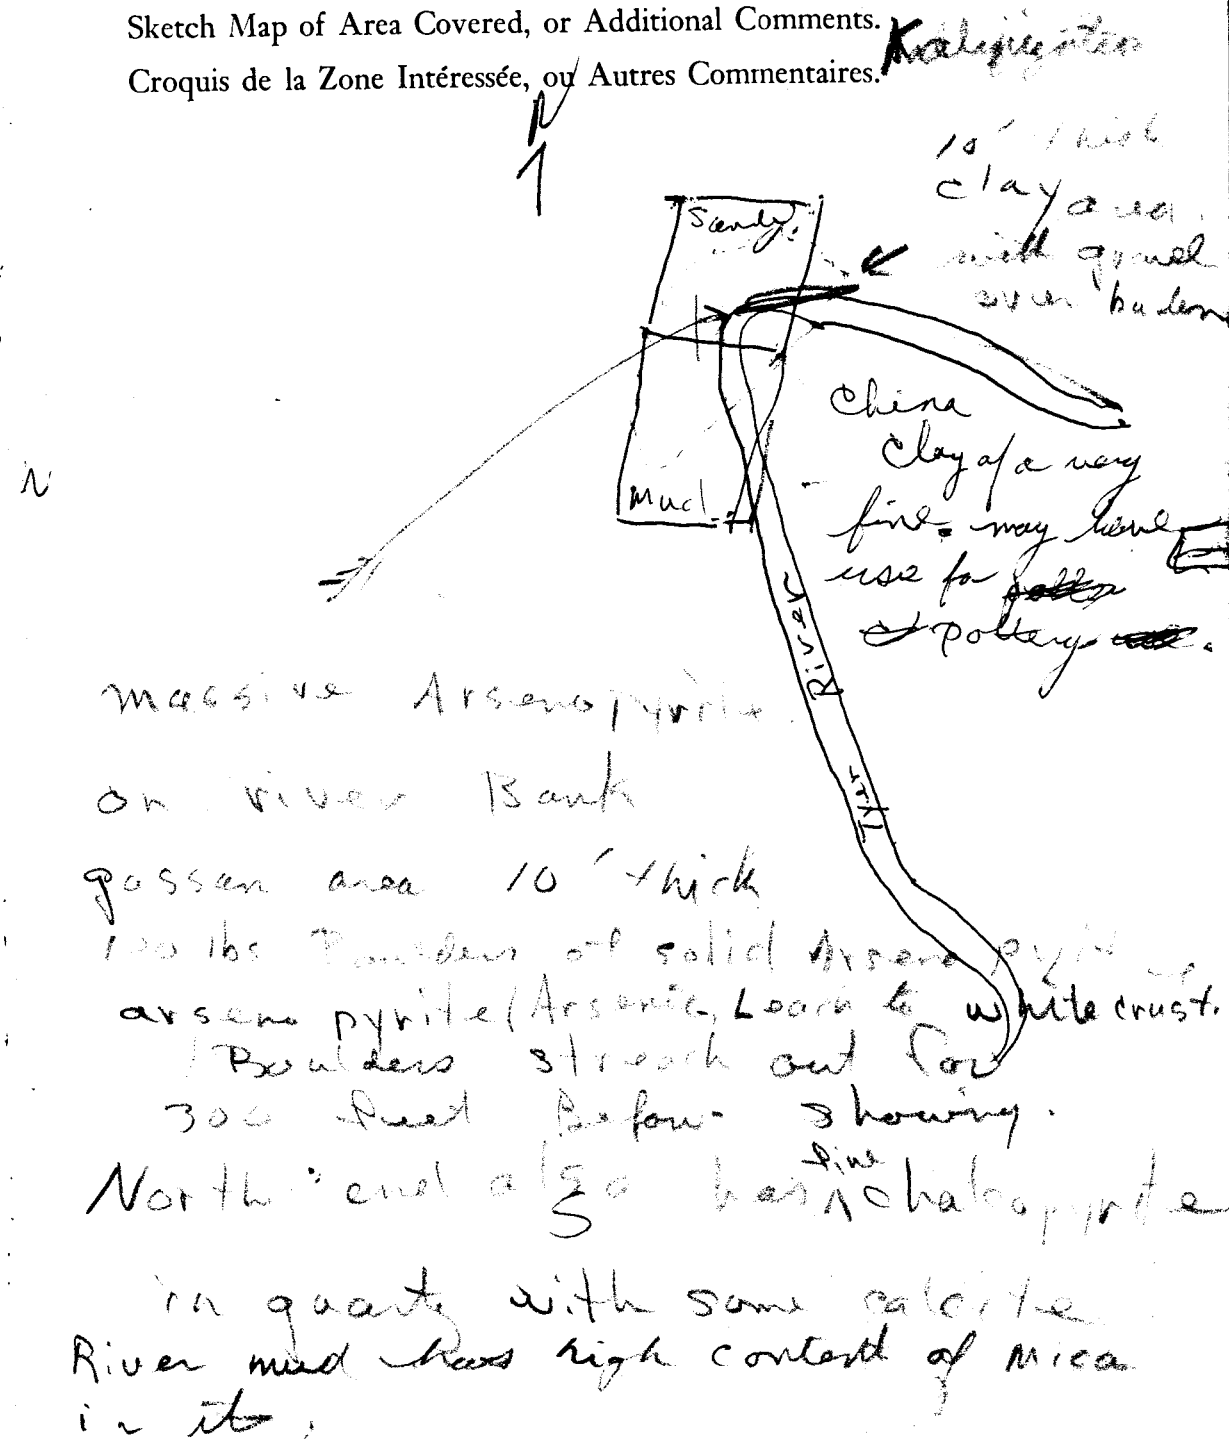 Sketch Map of Area Covered, or Additional Comments.
Croquis de la Zone Intéressée, ou Autres Commentaires.
N
10' thick
clay area.
with gravel
over burden
Sandy.
China
Clay of a very
fine. may have
use for
pottery.
Mud
N
River
Tyer
massive Arsenopyrite.
on river Bank
gossan area 10' thick
100 lbs Boulders of solid Arsenopyrite
arseno pyrite/Arsenic, Leach to white crust.
Boulders streach out for
300 feet Before showing.
North end also has fine chalcopyrite
in quartz with some calcite
River mud has high content of Mica
in it.